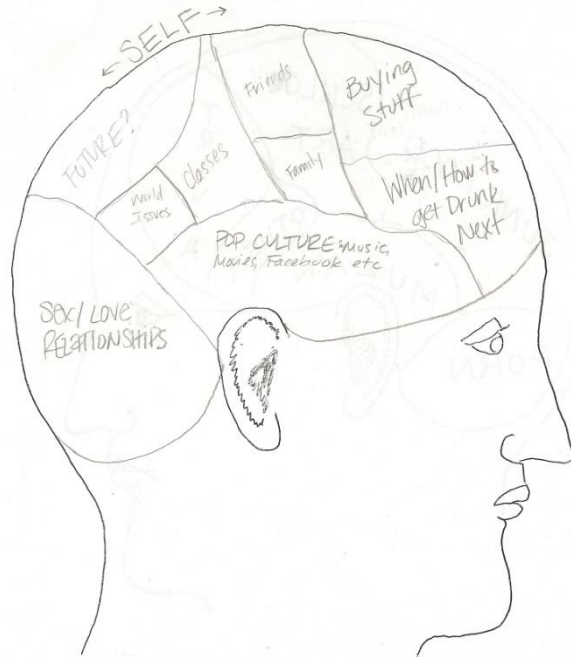 ← SELF →
FUTURE?
World
Issues
Classes
Friends
Family
Buying
Stuff
When/How to
get Drunk
Next
POP CULTURE: Music,
Movies, Facebook etc
Sex/LOVE
RELATIONSHIPS